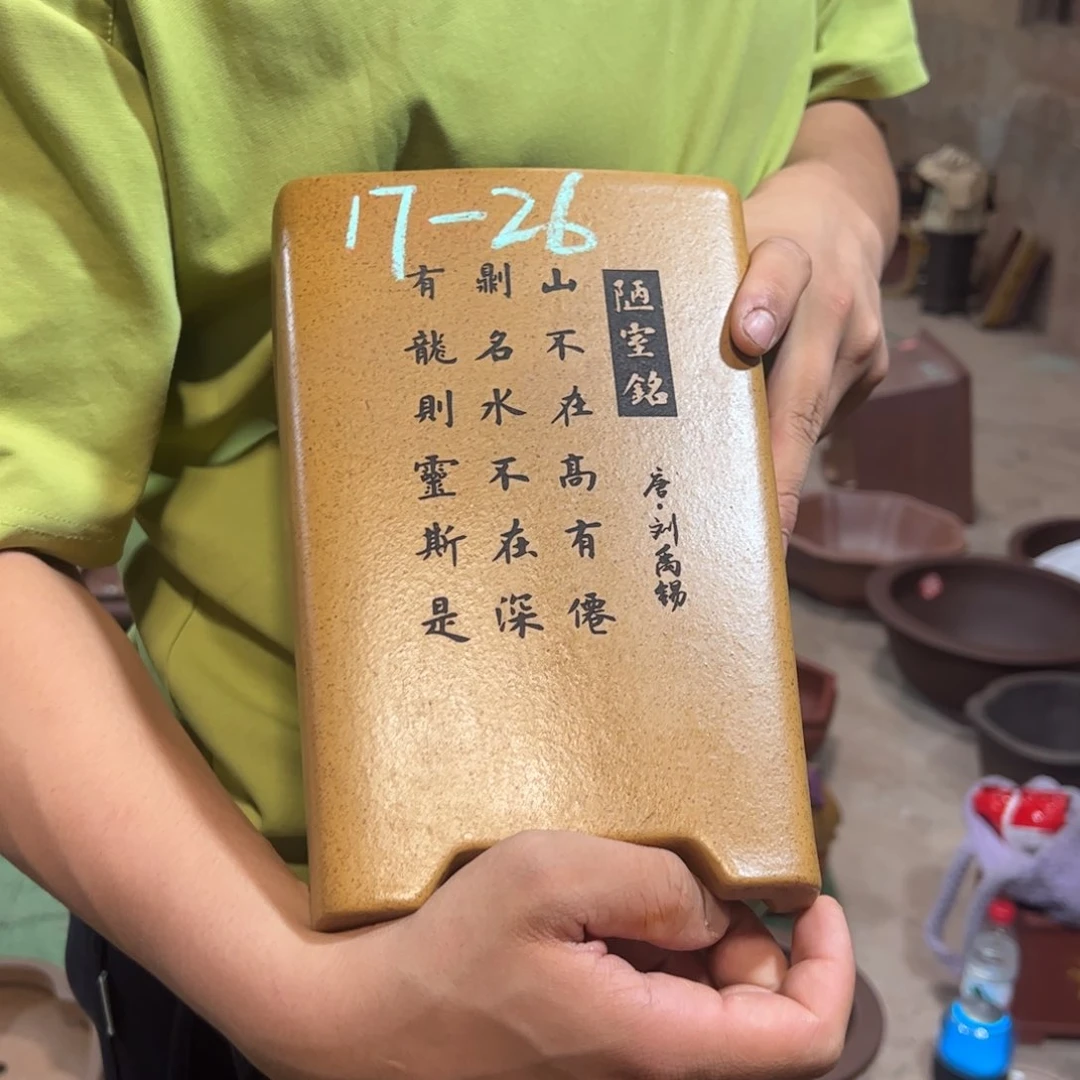 17-26
陋室銘
唐·刘禹錫
山不在高有僊
剘名水不在深
有龍則靈斯是